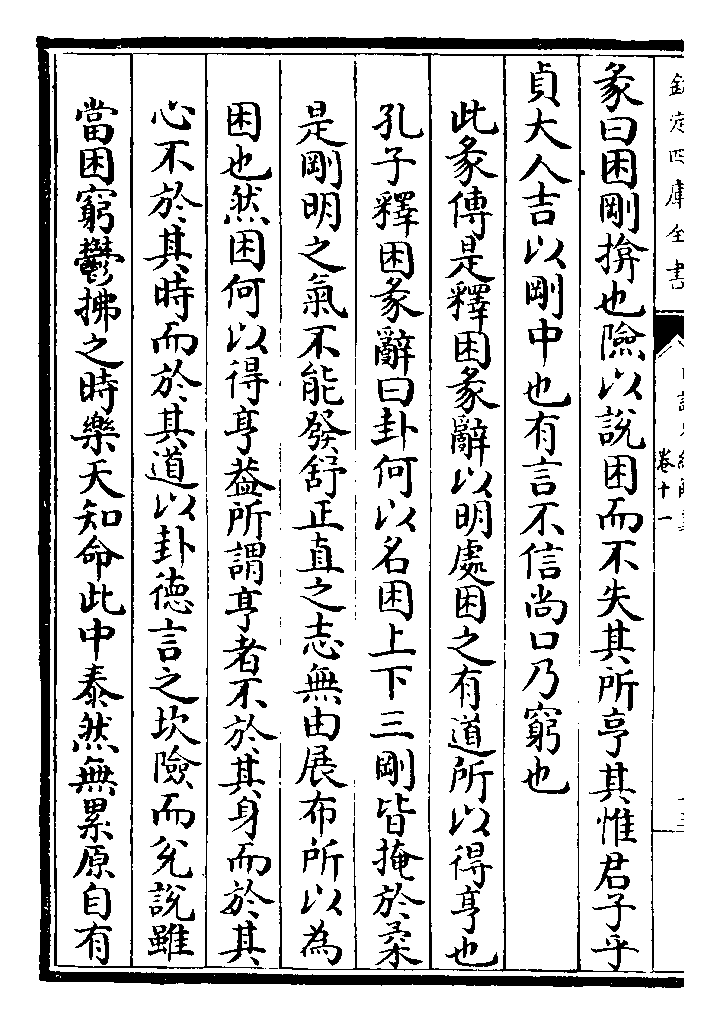 欽定四庫全書
卷十一
彖曰困剛揜也險以說困而不失其所亨其惟君子乎
貞大人吉以剛中也有言不信尚口乃窮也
此彖傳是釋困彖辭以明處困之有道所以得亨也
孔子釋困彖辭曰卦何以名困上下三剛皆掩於柔
是剛明之氣不能發舒正直之志無由展布所以為
困也然困何以得亨葢所謂亨者不於其身而於其
心不於其時而於其道以卦德言之坎險而兌說雖
當困窮鬱拂之時樂天知命此中泰然無累原自有